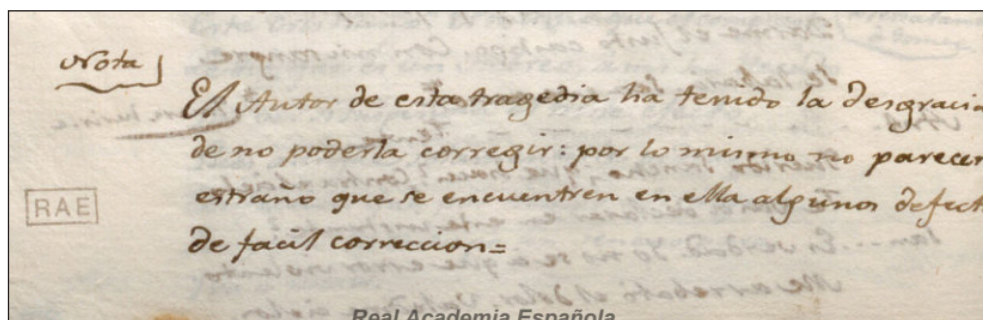 Nota
El Autor de esta tragedia ha tenido la desgracia
de no poderla corregir: por lo mismo no parecer
estraño que se encuentren en ella algunos defect
de facil correccion=
RAE
Real Academia Española